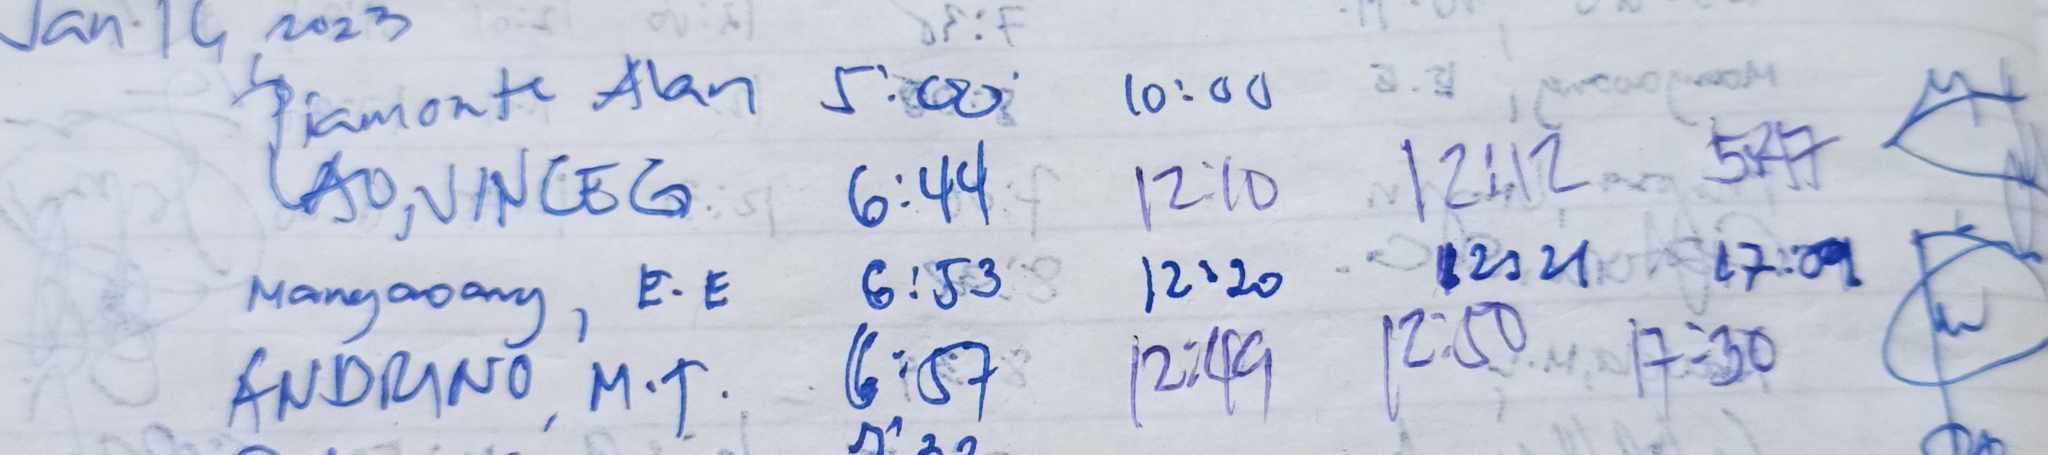 Jan. 16, 2023
Piamonte Alan 5:00 10:00
LAO, VINCE G 6:44 12:10 12:12 5:47
Mangaoang, E.E 6:53 12:20 12:21 17:09
ANDRINO, M.T. 6:57 12:49 12:50 17:30